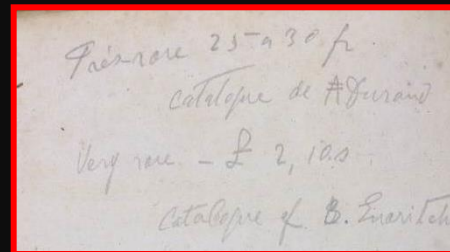 Très-rare 25 a 30 fr
catalogue de A Durand
Very rare - £ 2, 10.s
catalogue of B.